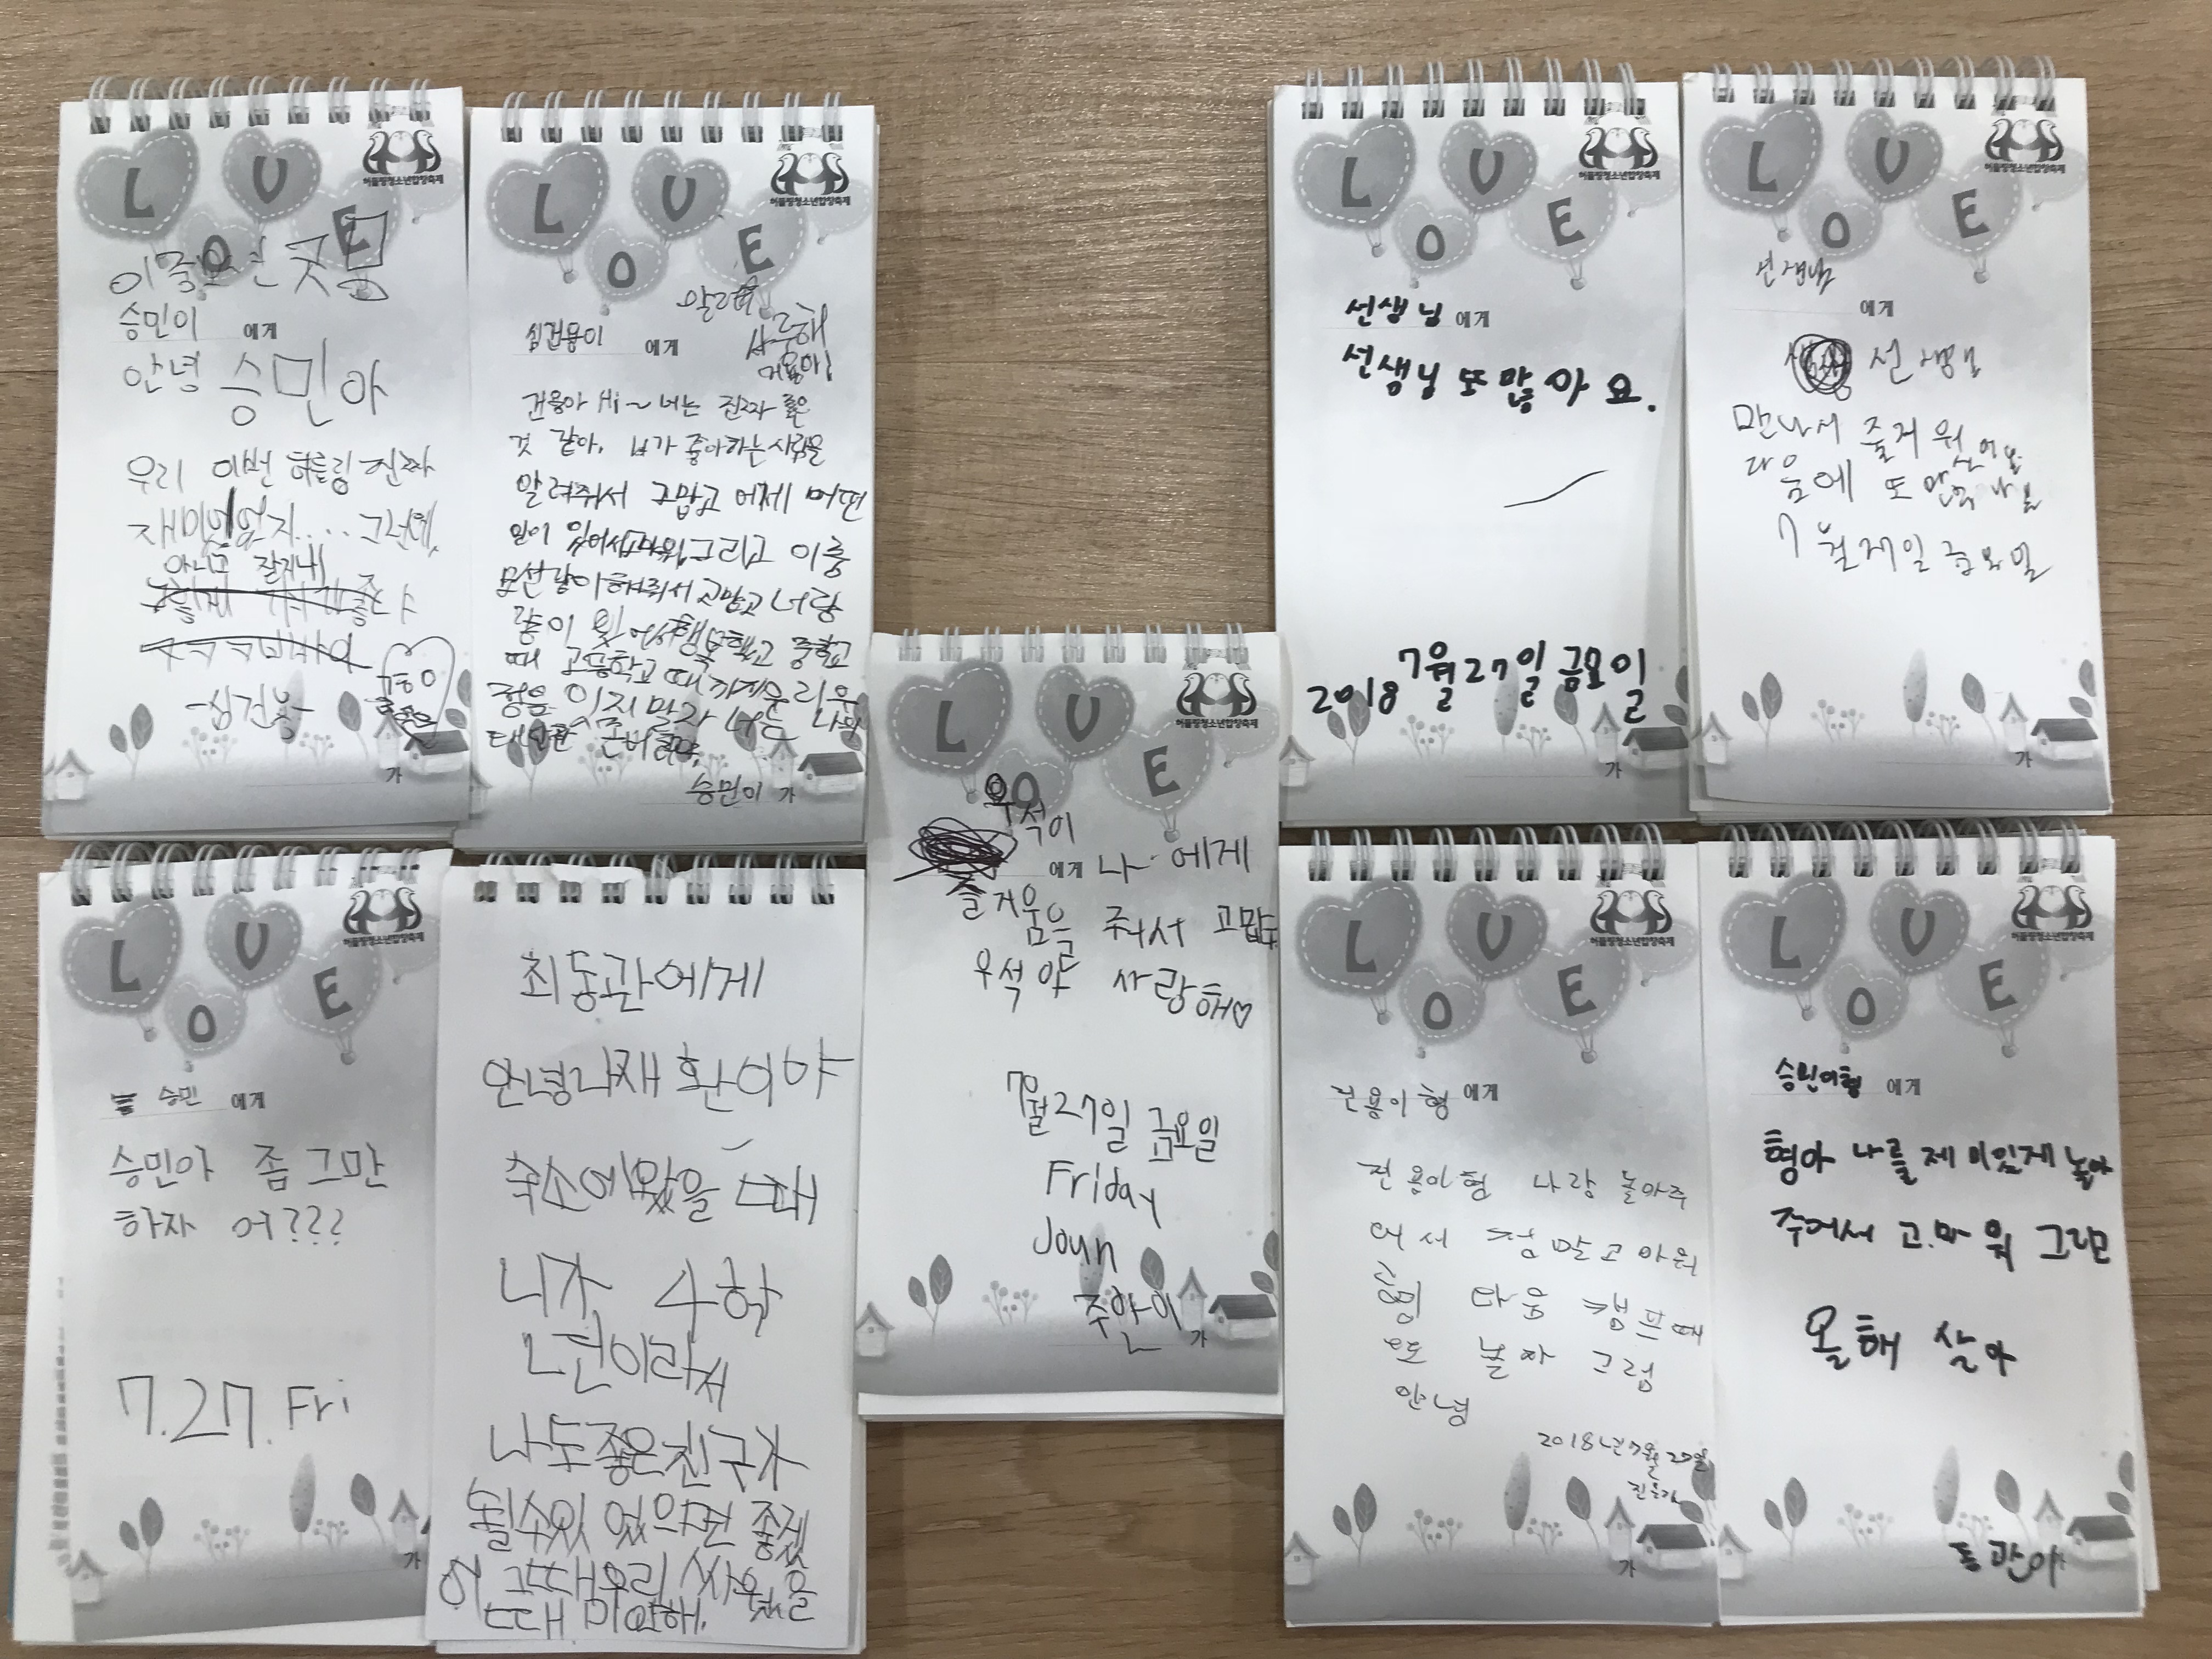 LOVE
허들링청소년합창축제
승민이 에게
안녕 승민아
우리 이번 허들링 진짜
재미있었지.... 그런데,
아니고 잘지내
-심건용-
가
LOVE
허들링청소년합창축제
심건용이 에게
사랑해
건용아 Hi~ 너는 진짜 좋은
것 같아. 내가 좋아하는 사람을
알려줘서 고맙고 어제 어떤
일이 있어서 고마워 그리고 이층
고맙고 너랑
같이 행복했고 중학교
때 고등학교 때 까지 우리 우
정을 잊지 말자 너는 나의
승민이 가
LOVE
허들링청소년합창축제
선생님 에게
선생님 또 만나요.
2018 7월 27일 금요일
가
LOVE
허들링청소년합창축제
선생님
에게
선생님
만나서 즐거웠어요
다음에 또 만나요
7월 27일 금요일
가
LOVE
허들링청소년합창축제
우석이
에게 나에게
즐거움을 줘서 고맙다
우석아 사랑해♡
7월 27일 금요일
Friday
Joun
주안이 가
LOVE
허들링청소년합창축제
승민 에게
승민아 좀 그만
하자 어???
7.27. Fri
가
최동관에게
안녕 나 재환이야
숙소에 왔을 때
니가 4학
년이라서
나도 좋은 친구가
될수 있었으면 좋겠
어 그때 우리 싸웠을
때 미안해.
LOVE
허들링청소년합창축제
건용이형 에게
건용이형 나랑 놀아주
어서 정말 고마워
다음 캠프때
또 놀자 그럼
안녕
2018년 7월 27일
가
LOVE
허들링청소년합창축제
승민이형 에게
형아 나를 제미있게 놀아
주어서 고마워 그럼
올해 살아
동관이